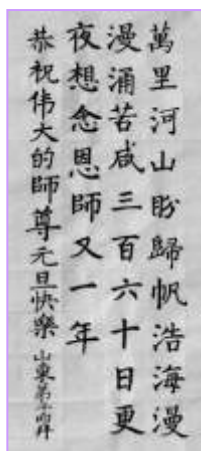 萬里河山盼歸帆浩海漫
漫涌苦咸三百六十日更
夜想念恩師又一年
恭祝伟大的師尊元旦快樂山東弟子叩拜